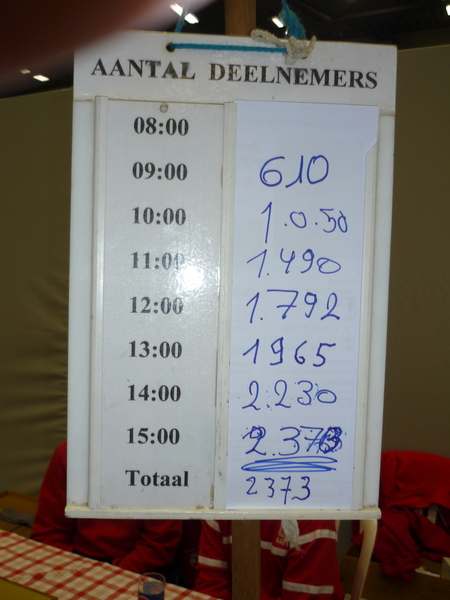 AANTAL DEELNEMERS
08:00
09:00 610
10:00 1.0.50
11:00 1.490
12:00 1.792
13:00 1965
14:00 2.230
15:00 2.373
Totaal 2373